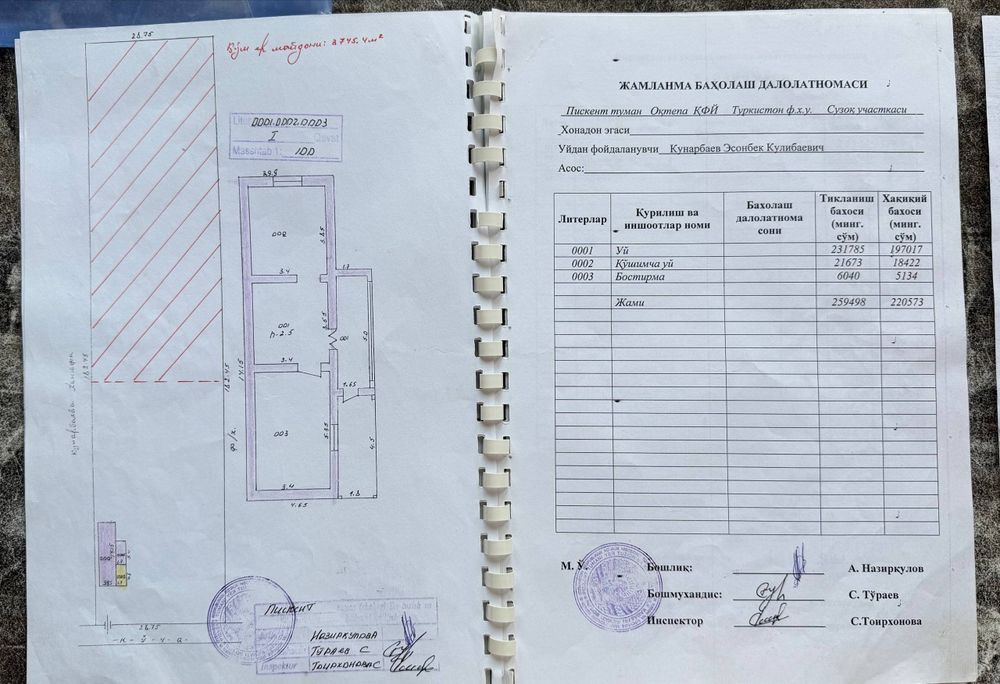 28.75
Қ-ўм ек майдони: 3745.4м²
Liter 0001.0002.0003
I Qavat
Masshtab 1: 100
002
3.25
3.4
1.7
001
П-2.5
2.65
001
5.0
3.4
1.65
003
5.35
4.5
3.4
1.8
4.65
14.15
162.45
ф/х.
26.75
-к-ў-ч-а-
Пискент
Назиркулова
Тураев С
Inspektor Тоирхонова С
ЖАМЛАНМА БАҲОЛАШ ДАЛОЛАТНОМАСИ
Пискент туман Оқтепа ҚФЙ Туркистон ф.х.у. Сузоқ участкаси
Хонадон эгаси
Уйдан фойдаланувчи Кунарбаев Эсонбек Кулибаевич
Асос:
Литерлар Қурилиш ва иншоотлар номи Бахолаш далолатнома сони Тикланиш бахоси (минг. сўм) Хақиқий бахоси (минг. сўм)
0001 Уй 231785 197017
0002 Қўшимча уй 21673 18422
0003 Бостирма 6040 5134
Жами 259498 220573
М. Ў.
Бошлиқ: А. Назирқулов
Бошмухандис: С. Тўраев
Инспектор С.Тоирхонова